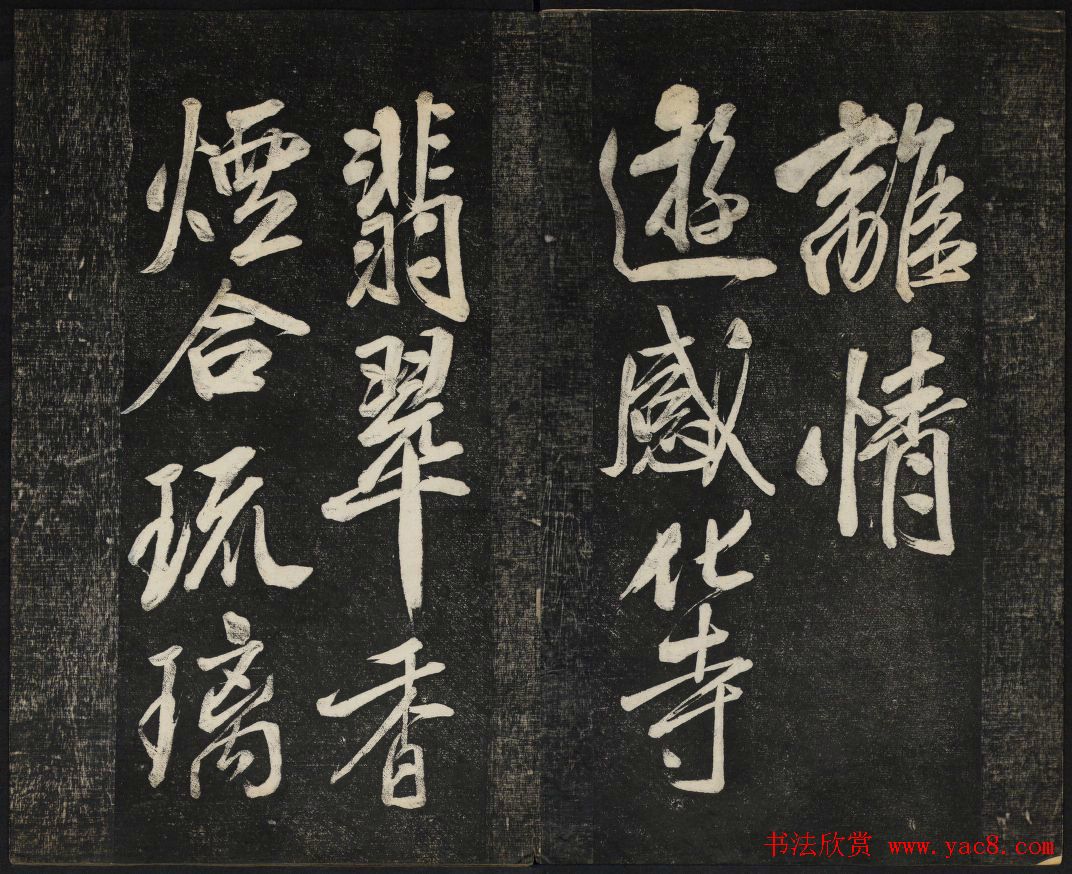 離情
遊感化寺
翡翠香
煙合琉璃
书法欣赏 www.yac8.com